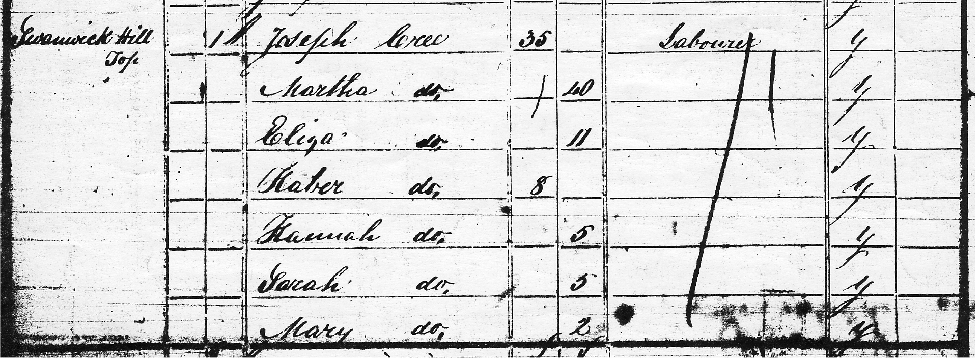 Swanwick Hill Top 1 Joseph Cree 35 Labourer y
Martha do. 40 y
Eliza do. 11 y
Kaber do. 8 y
Hannah do. 5 y
Sarah do. 5 y
Mary do. 2 y